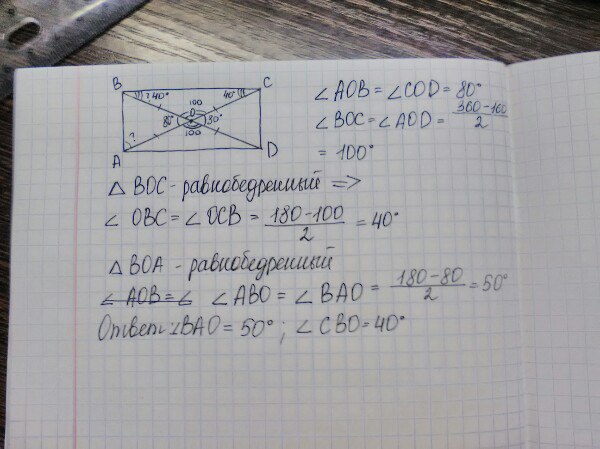 B C
? 40° 40°
100
O
80° 80°
100
?
A D
∠ AOB = ∠ COD = 80°
∠ BOC = ∠ AOD = (360-160)/2
= 100°
△ BOC - равнобедренный =>
∠ OBC = ∠ OCB = (180-100)/2 = 40°
△ BOA - равнобедренный
∠ AOB = ∠ ∠ ABO = ∠ BAO = (180-80)/2 = 50°
Ответ: ∠BAO = 50° ; ∠ CBO = 40°